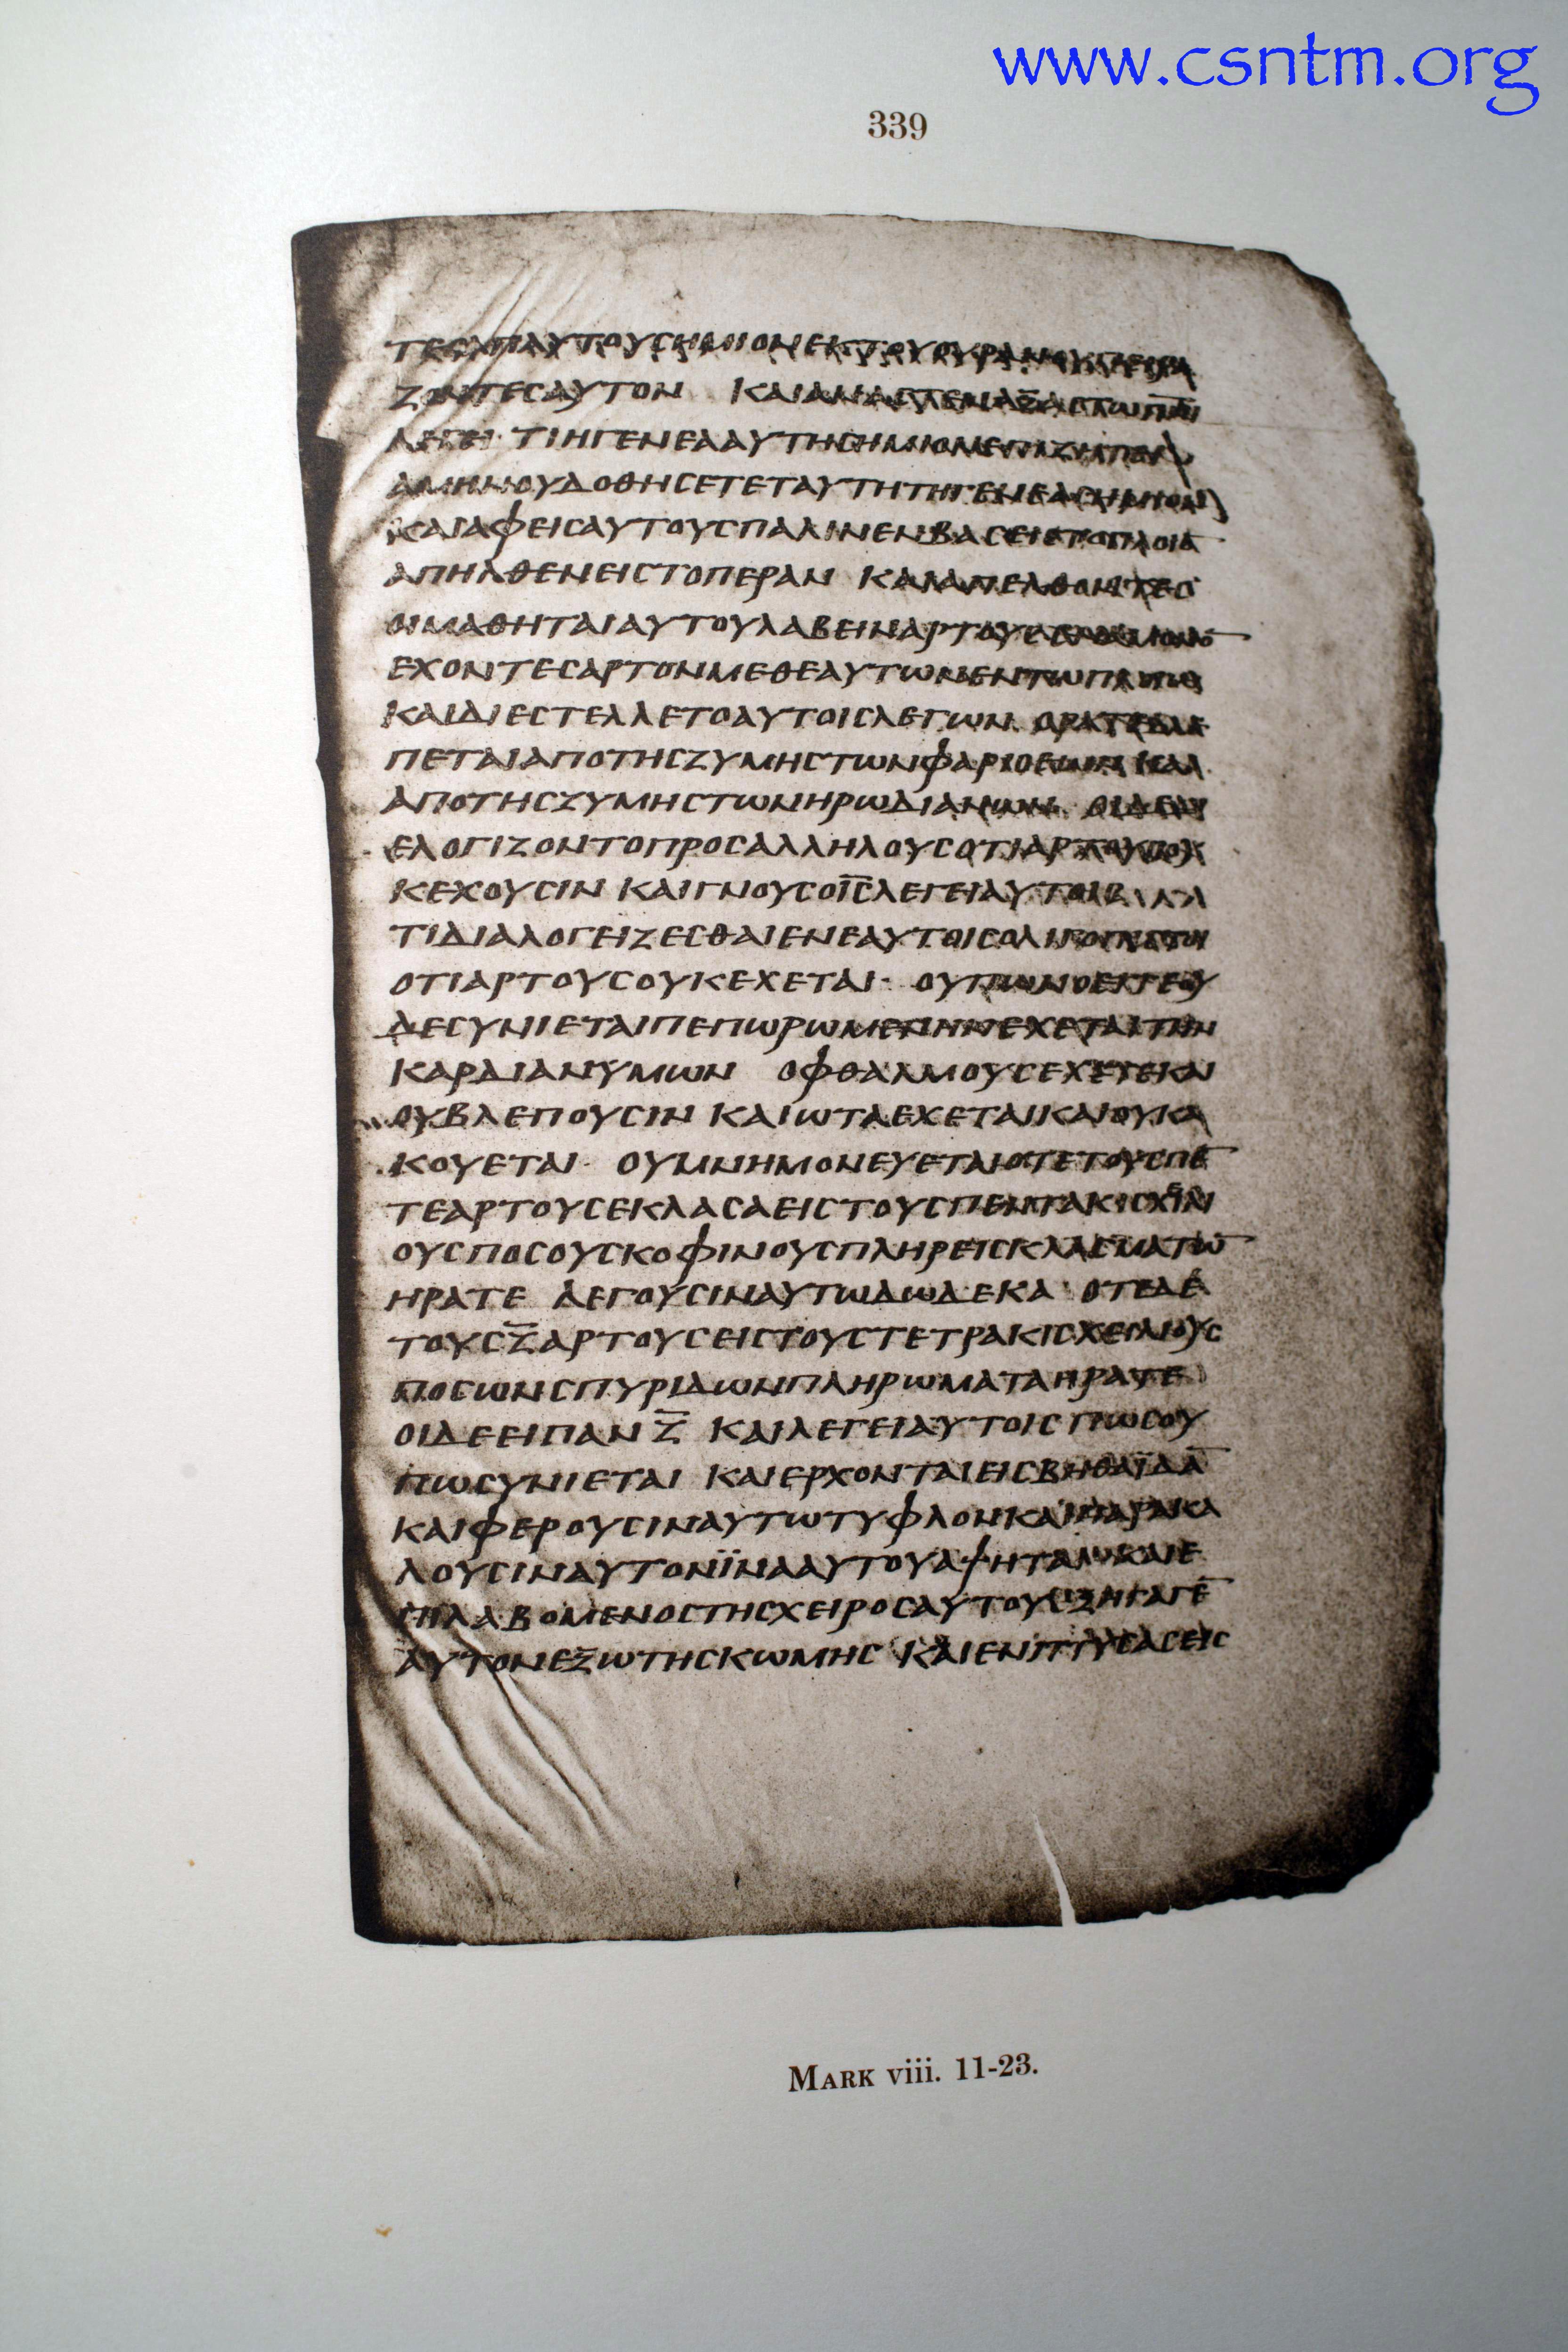 www.csntm.org
339
ΤΕϹΑΠΑΥΤΟΥϹΗΜΙΟΝΕΚΤΟΥΟΥΡΑΝΟΥΠΕΙΡΑ
ΖΟΝΤΕϹΑΥΤΟΝ ΚΑΙΑΝΑϹΤΕΝΑΞΑϹΤΩΠΝΙ
ΛΕΓΕΙ· ΤΙΗΓΕΝΕΑΑΥΤΗϹΗΜΙΟΝ
ΑΜΗΝΟΥΔΟΘΗϹΕΤΕΤΑΥΤΗΤΗΓΕΝΕΑϹΗΜΙΟΝ
ΚΑΙΑΦΕΙϹΑΥΤΟΥϹΠΑΛΙΝΕΝΒΑϹ
ΑΠΗΛΘΕΝΕΙϹΤΟΠΕΡΑΝ ΚΑΙΑΠΕΛΘΟΝΤΕϹ
ΟΙΜΑΘΗΤΑΙΑΥΤΟΥΛΑΒΕΙΝΑΡΤΟΥϹ
ΕΧΟΝΤΕϹΑΡΤΟΝΜΕΘΕΑΥΤΩΝΕΝΤΩΠΛΟΙΩ
ΚΑΙΔΙΕϹΤΕΛΛΕΤΟΑΥΤΟΙϹΛΕΓΩΝ ΟΡΑΤΕΒΛΕ
ΠΕΤΑΙΑΠΟΤΗϹΖΥΜΗϹΤΩΝΦΑΡΙϹΕΩΝ ΚΑΙ
ΑΠΟΤΗϹΖΥΜΗϹΤΩΝΗΡΩΔΙΑΝΩΝ· ΟΙΔΕΔΙ
ΕΛΟΓΙΖΟΝΤΟΠΡΟϹΑΛΛΗΛΟΥϹΟΤΙΑΡΤΟΥϹΟΥ
ΚΕΧΟΥϹΙΝ ΚΑΙΓΝΟΥϹΟΙϹΛΕΓΕΙΑΥΤΟΙϹ
ΤΙΔΙΑΛΟΓΕΙΖΕϹΘΑΙΕΝΕΑΥΤΟΙϹΟΛΙΓΟΠΙϹΤΟΙ
ΟΤΙΑΡΤΟΥϹΟΥΚΕΧΕΤΑΙ· ΟΥΠΩΝΟΕΙΤΕΟΥ
ΔΕϹΥΝΙΕΤΑΙΠΕΠΩΡΩΜΕΝΗΝΕΧΕΤΑΙΤΗΝ
ΚΑΡΔΙΑΝΥΜΩΝ ΟΦΘΑΛΜΟΥϹΕΧΕΤΕΚΑΙ
ΟΥΒΛΕΠΟΥϹΙΝ ΚΑΙΩΤΑΕΧΕΤΑΙΚΑΙΟΥΚΑ
ΚΟΥΕΤΑΙ· ΟΥΜΝΗΜΟΝΕΥΕΤΑΙΟΤΕΤΟΥϹΠΕ̅
ΤΕΑΡΤΟΥϹΕΚΛΑϹΑΕΙϹΤΟΥϹΠΕΝΤΑΚΙϹΧΙΛΙ
ΟΥϹΠΟϹΟΥϹΚΟΦΙΝΟΥϹΠΛΗΡΕΙϹΚΛΑϹΜΑΤΩ̅
ΗΡΑΤΕ ΛΕΓΟΥϹΙΝΑΥΤΩΔΩΔΕΚΑ ΟΤΕΔΕ
ΤΟΥϹΖ̅ΑΡΤΟΥϹΕΙϹΤΟΥϹΤΕΤΡΑΚΙϹΧΕΙΛΙΟΥϹ
ΠΟϹΩΝϹΠΥΡΙΔΩΝΠΛΗΡΩΜΑΤΑΗΡΑΤΕ
ΟΙΔΕΕΙΠΑΝ Ζ̅ ΚΑΙΛΕΓΕΙΑΥΤΟΙϹ ΠΩϹΟΥ
ΠΩϹΥΝΙΕΤΑΙ ΚΑΙΕΡΧΟΝΤΑΙΕΙϹΒΗΘΑΪΔΑ̅
ΚΑΙΦΕΡΟΥϹΙΝΑΥΤΩΤΥΦΛΟΝΚΑΙΠΑΡΑΚΑ
ΛΟΥϹΙΝΑΥΤΟΝΪΝΑΑΥΤΟΥΑΨΗΤΑΙ ΚΑΙΕ
ΠΙΛΑΒΟΜΕΝΟϹΤΗϹΧΕΙΡΟϹΑΥΤΟΥΕΞΗΓΑΓΕ̅
ΑΥΤΟΝΕΞΩΤΗϹΚΩΜΗϹ ΚΑΙΕΝΠΤΥϹΑϹΕΙϹ
MARK viii. 11-23.